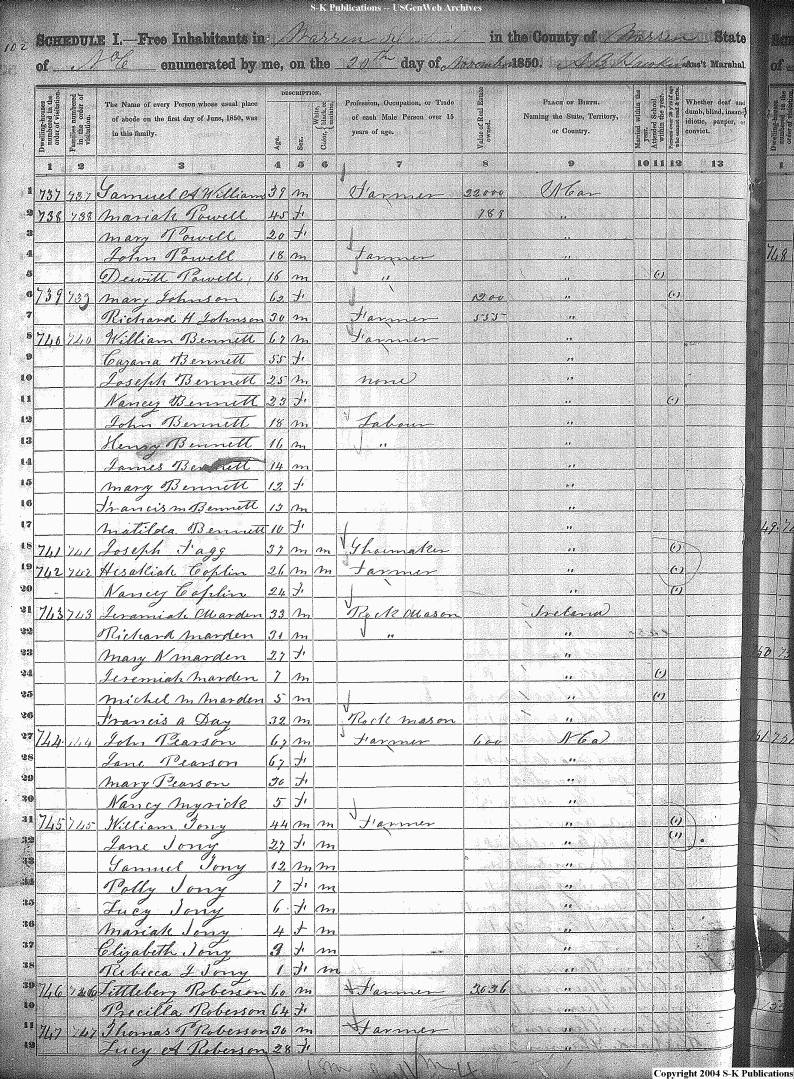 S-K Publications -- USGenWeb Archives
102
SCHEDULE I.—Free Inhabitants in Warren in the County of Warren State
of N C enumerated by me, on the 20th day of November 1850. Ass't Marshal.
Dwelling-houses numbered in the order of visitation.
Families numbered in the order of visitation.
The Name of every Person whose usual place of abode on the first day of June, 1850, was in this family.
DESCRIPTION.
Age.
Sex.
Color,
White, black, or
Profession, Occupation, or Trade of each Male Person over 15 years of age.
Value of Real Estate owned.
PLACE OF BIRTH.
Naming the State, Territory, or Country.
Married within the year.
Attended School within the year.
Whether deaf and dumb, blind, insane, idiotic, pauper, or convict.
1 2 3 4 5 6 7 8 9 10 11 12 13
1 737 737 Samuel A Williams 39 m Farmer 22000 N Car
2 738 738 Mariah Powell 45 f 789 "
3 Mary Powell 20 f "
4 John Powell 18 m Farmer "
5 Dewitt Powell 16 m " " (1)
6 739 739 Mary Johnson 62 f 1200 " (1)
7 Richard H Johnson 30 m Farmer 555 "
8 740 740 William Bennett 67 m Farmer "
9 Cazana Bennett 55 f "
10 Joseph Bennett 25 m none "
11 Nancy Bennett 23 f " (1)
12 John Bennett 18 m Labour "
13 Henry Bennett 16 m " "
14 James Bennett 14 m "
15 Mary Bennett 12 f "
16 Francis m Bennett 12 m "
17 Matilda Bennett 10 f "
18 741 741 Joseph Fagg 37 m m Shoemaker " (1)
19 742 742 Hesakiah Coplin 26 m m Farmer " (1)
20 Nancy Coplin 24 f " (1)
21 743 743 Jeremiah Marden 33 m Rock Mason Ireland
22 Richard Marden 31 m " "
23 Mary N Marden 27 f "
24 Jeremiah Marden 7 m " (1)
25 Michel M Marden 5 m " (1)
26 Francis a Day 32 m Rock mason "
27 744 744 John Pearson 67 m Farmer 600 N Ca
28 Jane Pearson 67 f "
29 Mary Pearson 30 f "
30 Nancy Myrick 5 f "
31 745 745 William Jony 44 m m Farmer " (1)
32 Jane Jony 27 f m " (1)
33 Samuel Jony 12 m m "
34 Polly Jony 7 f m "
35 Lucy Jony 6 f m "
36 Mariah Jony 4 f m "
37 Elizabeth Jony 3 f m "
38 Rebecca J Jony 1 f m "
39 746 746 Littleberg Roberson 60 m Farmer 3036 "
40 Precilla Roberson 64 f "
41 747 747 Thomas P Roberson 30 m Farmer "
42 Lucy A Roberson 28 f "
748
Copyright 2004 S-K Publications